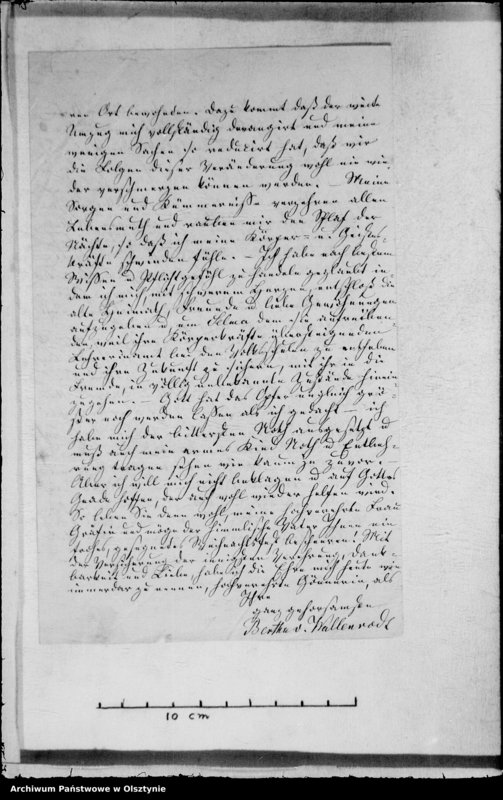 ren Ort bewohnden. Dazu kommt daß der weite
Umzug mich vollständig derangirt und meine
wenigen Sachen so reducirt hat, daß wir
die Folgen dieser Veränderung wohl nie wie-
der verschmerzen können werden. – Meine
Sorgen und Kümmernisse verzehren allen
Lebensmuth und rauben mir den Schlaf der
Nächte, so daß ich meine Körper- u. Geistes-
kräfte schwinden fühle. – Ich habe nach bestem
Wissen u Pflichtgefühl zu handeln geglaubt in-
dem ich mich, mit schwerem Herzen, entschloß die
alte Heimath, Freunde u liebe Gewohnheiten
aufzugeben u um Selma dem sie aufreiben-
den weil ihre Körperkräfte übersteigenden
Lehreramt bei den Volksschulen zu entheben
und ihre Zukunft zu sichern, mit ihr in die
Fremde, in völlig unbekannte Zustände hinein-
zugehen. – Gott hat das Opfer ungleich grö-
ßer noch werden lassen als ich gedacht – ich
habe mich der bittersten Noth ausgesetzt u
muß auch mein armes Kind Noth u Entbeh-
rung tragen sehen wie kaum je zuvor. –
Aber ich will mich nicht beklagen u auf Gottes
Gnade hoffen der auch wohl wieder helfen wird.
So leben Sie denn wohl, meine hochverehrte Frau
Gräfin und möge der himmlische Vater Ihnen ein
frohes, gesegnetes Weihnachtsfest bescheeren! Mit
der Versicherung der innigsten Verehrung, Dank-
barkeit und Liebe, habe ich die Ehre mich heute wie
immerdar zu nennen, hochverehrte Gönnerin, als
Ihre
ganz gehorsamste
Bertha v. Wallenrodt
10 cm
Archiwum Państwowe w Olsztynie